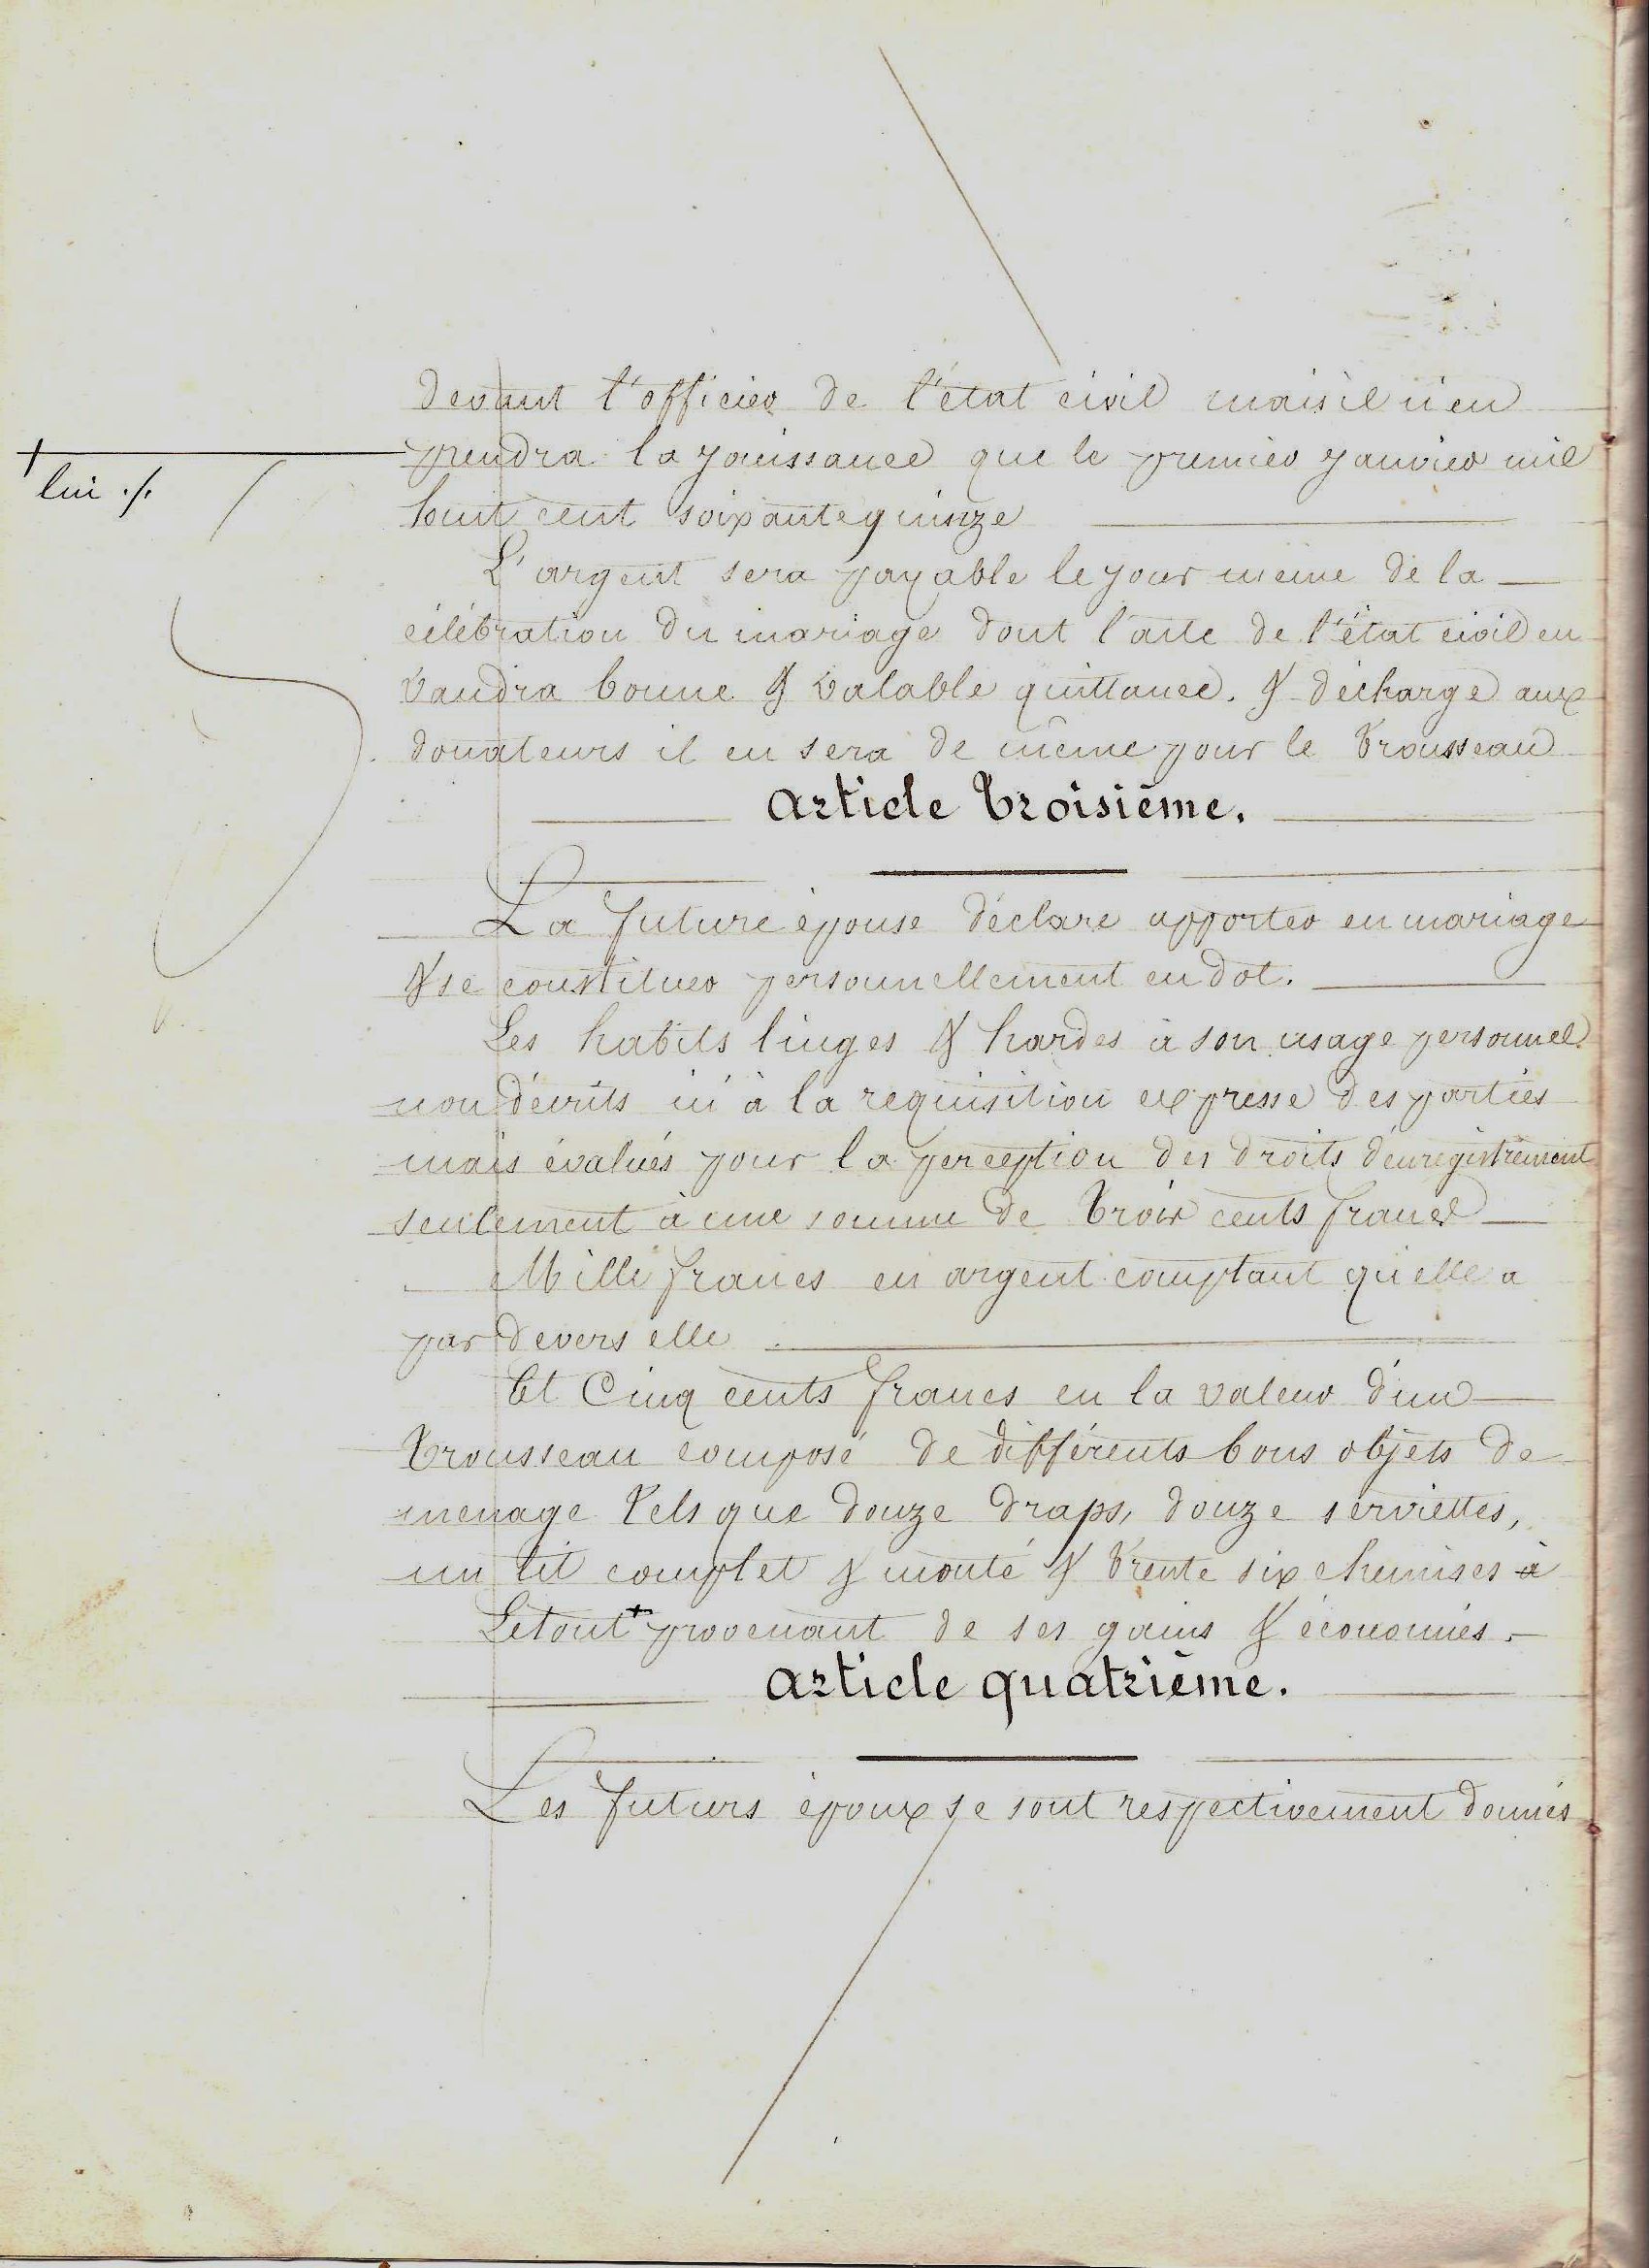 devant l'officier de l'état civil mais il n'en
prendra la jouissance que le premier janvier mil
+
lui ./.
huit cent soixante quinze
L'argent sera payable le jour même de la
célébration du mariage dont l'acte de l'état civil en
vaudra bonne & valable quittance. & décharge aux
donateurs il en sera de même pour le trousseau
Article troisième.
La future épouse déclare apporter en mariage
& se constituer personnellement en dot.
Les habits linges & hardes à son usage personnel
non décrits ici à la requisition expresse des parties
mais évalués pour la perception des droits d'enregistrement
seulement à une somme de trois cents francs
Mille francs en argent comptant qu'elle a
par devers elle
Et Cinq cents francs en la valeur d'un
trousseau composé de différents bons objets de
menage tels que douze draps, douze serviettes,
un lit complet & monté & trente six chemises à
Le tout + provenant de ses gains & économies.
Article quatrième.
Les futurs époux se sont respectivement donnés